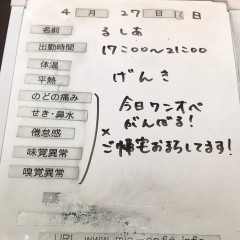 4 月 27 日 日
名前 るしあ
出勤時間 17:00〜21:00
体温
平熱 げんき
のどの痛み
せき・鼻水 今日ワンオペ
倦怠感 がんばる!
味覚異常 ×ご帰宅おまちしてます!
嗅覚異常